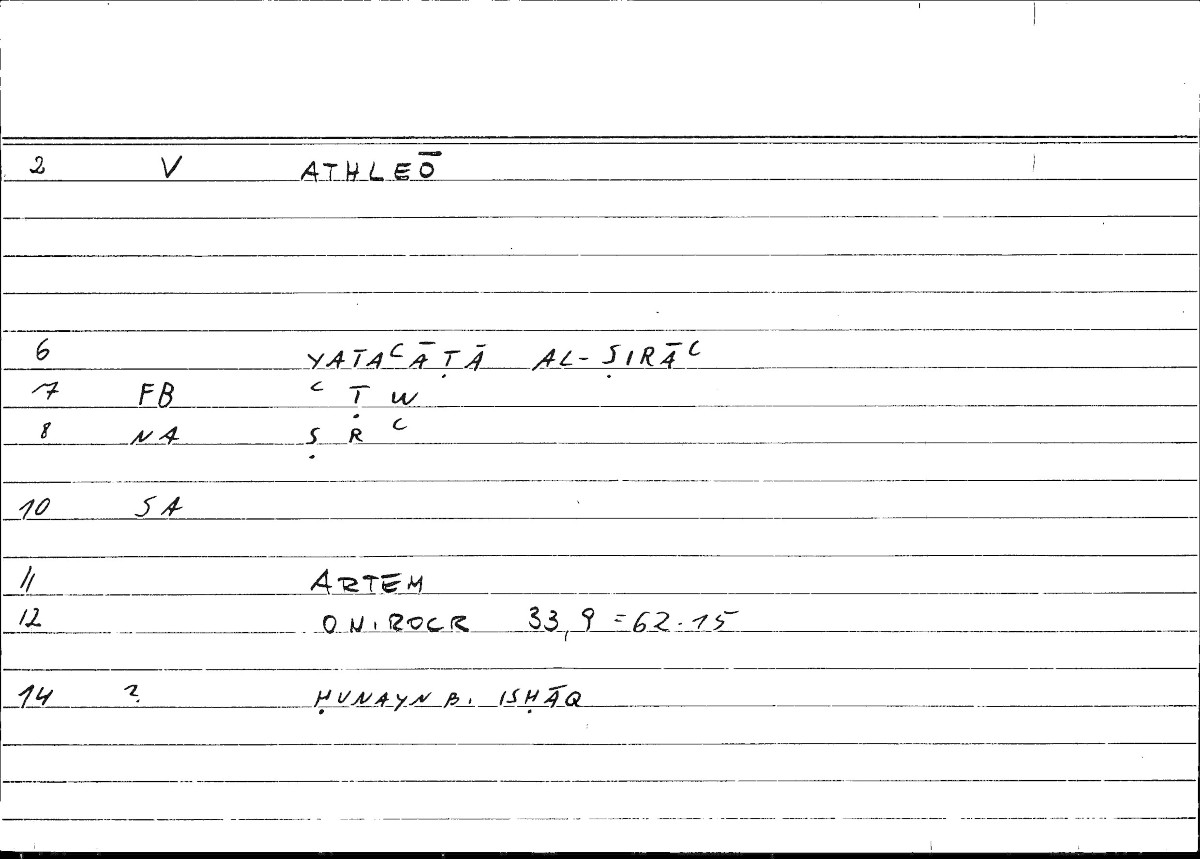 2 V ATHLEŌ
6 YATAʿĀṬĀ AL-ṢIRĀʿ
7 FB ʿ Ṭ W
8 NA Ṣ R ʿ
10 SA
11 ARTEM
12 ONIROCR 33,9 = 62.15
14 ? ḤUNAYN B. ISḤĀQ